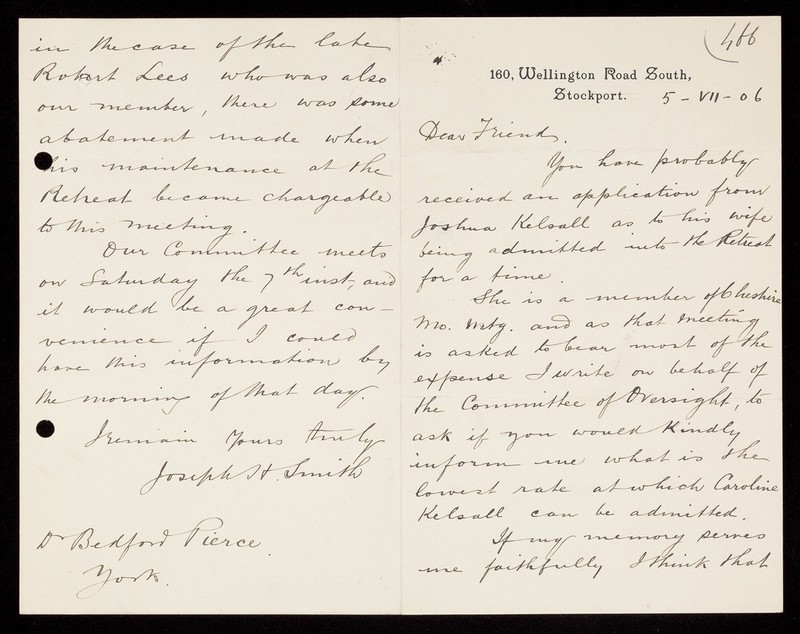 466
160, Wellington Road South,
Stockport. 5 - VII - 06
Dear Friend,
You have probably
received an application from
Joshua Kelsall as to his wife
being admitted into the Retreat
for a time.
She is a member of Cheshire
Mo. Mtg. and as that meeting
is asked to bear most of the
expense I write on behalf of
the Committee of Oversight, to
ask if you would kindly
inform me what is the
lowest rate at which Caroline
Kelsall can be admitted.
If my memory serves
me faithfully I think that
in the case of the late
Robert Lees who was also
our member, there was some
abatement made when
his maintenance at the
Retreat became chargeable
to this meeting.
Our Committee meets
on Saturday the 7th inst, and
it would be a great con-
venience if I could
have this information by
the morning of that day.
I remain yours truly
Joseph H. Smith
Dr Bedford Pierce.
York.